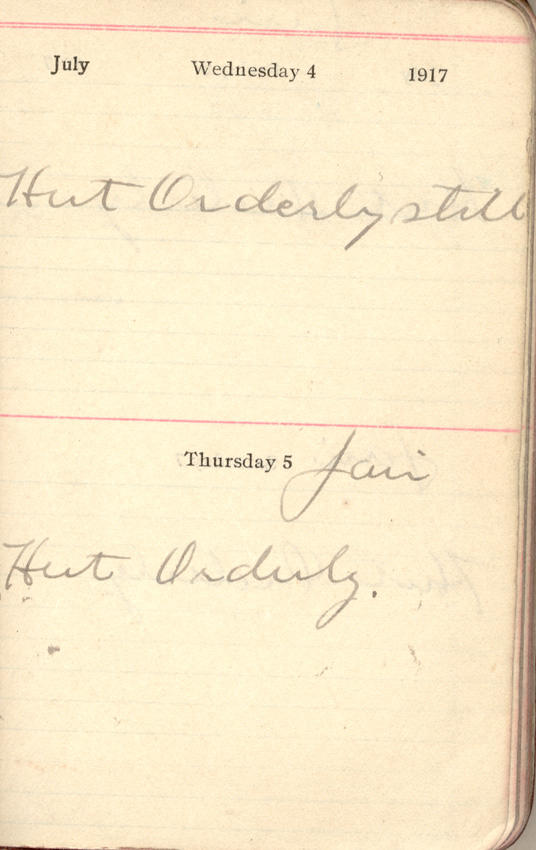 July Wednesday 4 1917
Hut Orderly still
Thursday 5 Fair
Hut Orderly.